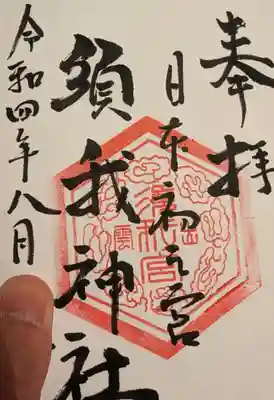 奉拝
日本初之宮
須我神社
令和四年八月